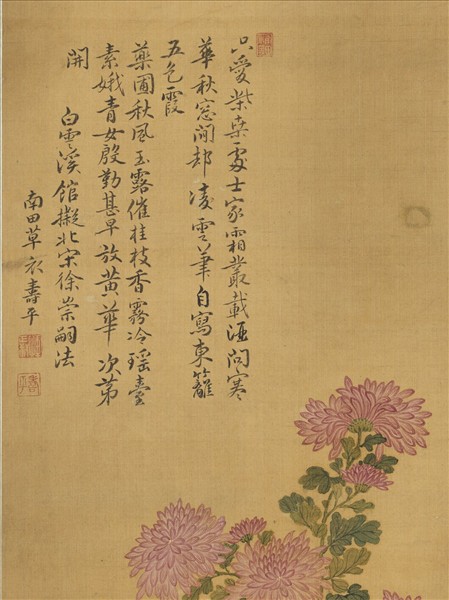 只愛柴桑處士家霜叢載酒問寒
華秋窓閒却凌雲筆自寫東籬
五色霞
藥圃秋風玉露催桂枝香霧冷瑶臺
素娥青女殷勤甚早放黄華次第
開
白雲溪館擬北宋徐崇嗣法
南田草衣壽平